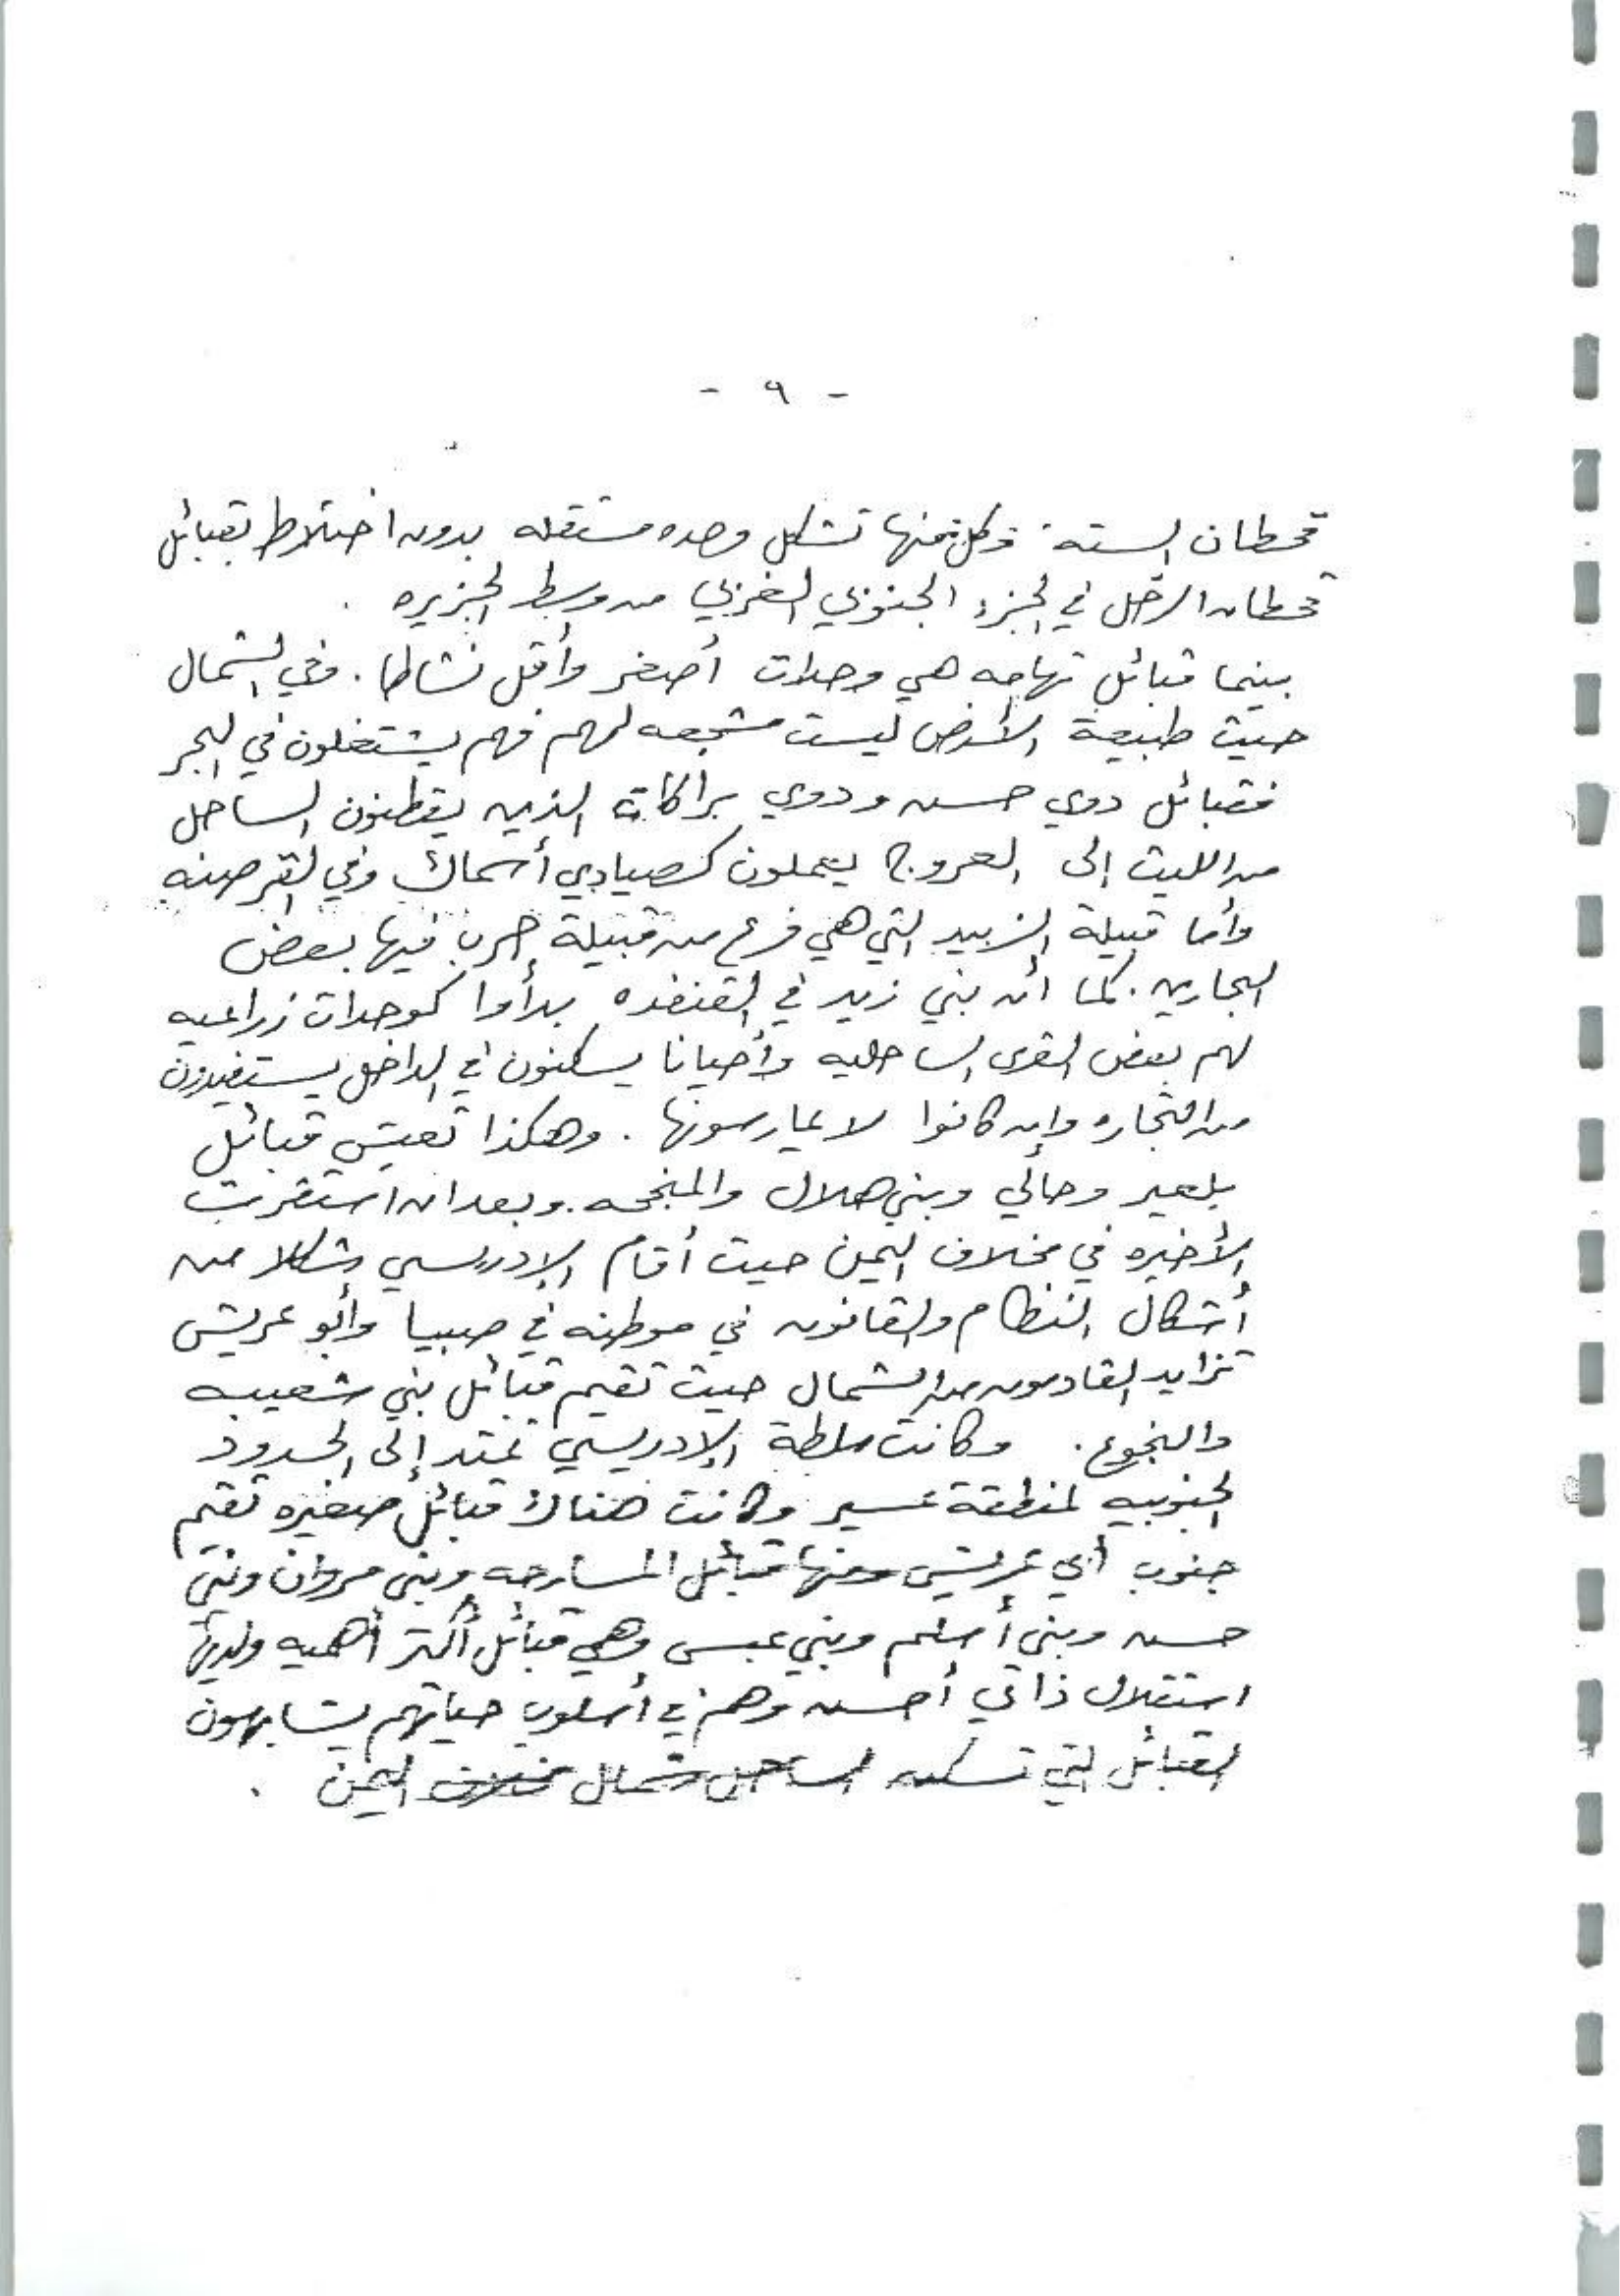 - ٩ -
قحطان الستة . وكل منها تشكل وحده مستقله بدون اختلاط بقبائل
قحطان الرحل في الجزء الجنوبي الغربي من وسط الجزيره .
بينما قبائل تهامه هي وحدات أصغر وأقل نشاطا . وفي الشمال
حيث طبيعة الأرض ليست مشجعه لهم فهم يشتغلون في البحر
فقبائل دوي حسن ودوي براكات الذين يقطنون الساحل
من الليث إلى العروج يعملون كصيادي أسماك وفي القرصنه
وأما قبيلة الزبيد التي هي فرع من قبيلة حرب فيها بعض
البحارين . كما أن بني زيد في القنفذه بدأوا كوحدات زراعيه
لهم بعض القرى الساحليه وأحيانا يسكنون في الداخل يستفيدون
من التجاره وإن كانوا لا يمارسونها . وهكذا تعيش قبائل
بلعير وحالي وبني هلال والمنجحه . وبعد ان استقرت
الأخيره في مخلاف اليمن حيث أقام الإدريسي شكلا من
أشكال النظام والقانون في موطنه في صبيا وأبو عريش
تزايد القادمون من الشمال حيث تقيم قبائل بني شعيبه
والنجوع . وكانت سلطة الإدريسي تمتد إلى الحدود
الجنوبيه لمنطقة عسير وكانت هناك قبائل صغيره تقيم
جنوب أبي عريش ومنها قبائل المسارحه وبني مروان وبني
حسن وبني أسلم وبني عبس وهي قبائل أكثر أهميه ولديها
استقلال ذاتي أحسن وهم في أسلوب حياتهم يشابهون
القبائل التي تسكن الساحل شمال مخلاف اليمن .